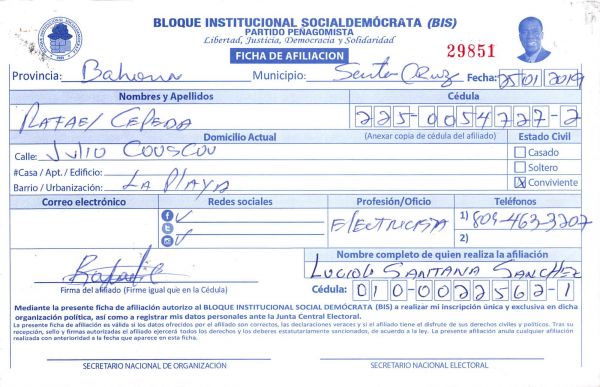 BLOQUE INSTITUCIONAL SOCIALDEMÓCRATA (BIS)
PARTIDO PEÑAGOMISTA
Libertad, Justicia, Democracia y Solidaridad
FICHA DE AFILIACION
29851
Provincia: Municipio: Santa Cruz Fecha: 25/01/2019
Nombres y Apellidos Cédula
RAFAEL CEPEDA 225-0054727-2
Domicilio Actual (Anexar copia de cédula del afiliado) Estado Civil
Calle: JULIO COUSCOU Casado
#Casa / Apt. / Edificio: Soltero
Barrio / Urbanización: LA PLAYA X Conviviente
Correo electrónico Redes sociales Profesión/Oficio Teléfonos
ELECTRICISTA 1) 809-463-3207
2)
Nombre completo de quien realiza la afiliación
LUCIOLO SANTANA SANCHEZ
Firma del afiliado (Firme igual que en la Cédula) Cédula: 010-0022562-1
Mediante la presente ficha de afiliación autorizo al BLOQUE INSTITUCIONAL SOCIAL DEMÓCRATA (BIS) a realizar mi inscripción única y exclusiva en dicha
organización política, así como a registrar mis datos personales ante la Junta Central Electoral.
La presente ficha de afiliación es válida si los datos ofrecidos por el afiliado son correctos, las declaraciones veraces y si el afiliado tiene el disfrute de sus derechos civiles y políticos. Tras su
recepción, sello y firmas autorizadas el afiliado ejercerá todos los derechos y los deberes estatutariamente sancionados, de acuerdo a la ley. La presente afiliación anula cualquier afiliación
realizada con anterioridad a la fecha que aparece en esta ficha.
SECRETARIO NACIONAL DE ORGANIZACIÓN SECRETARIO NACIONAL ELECTORAL